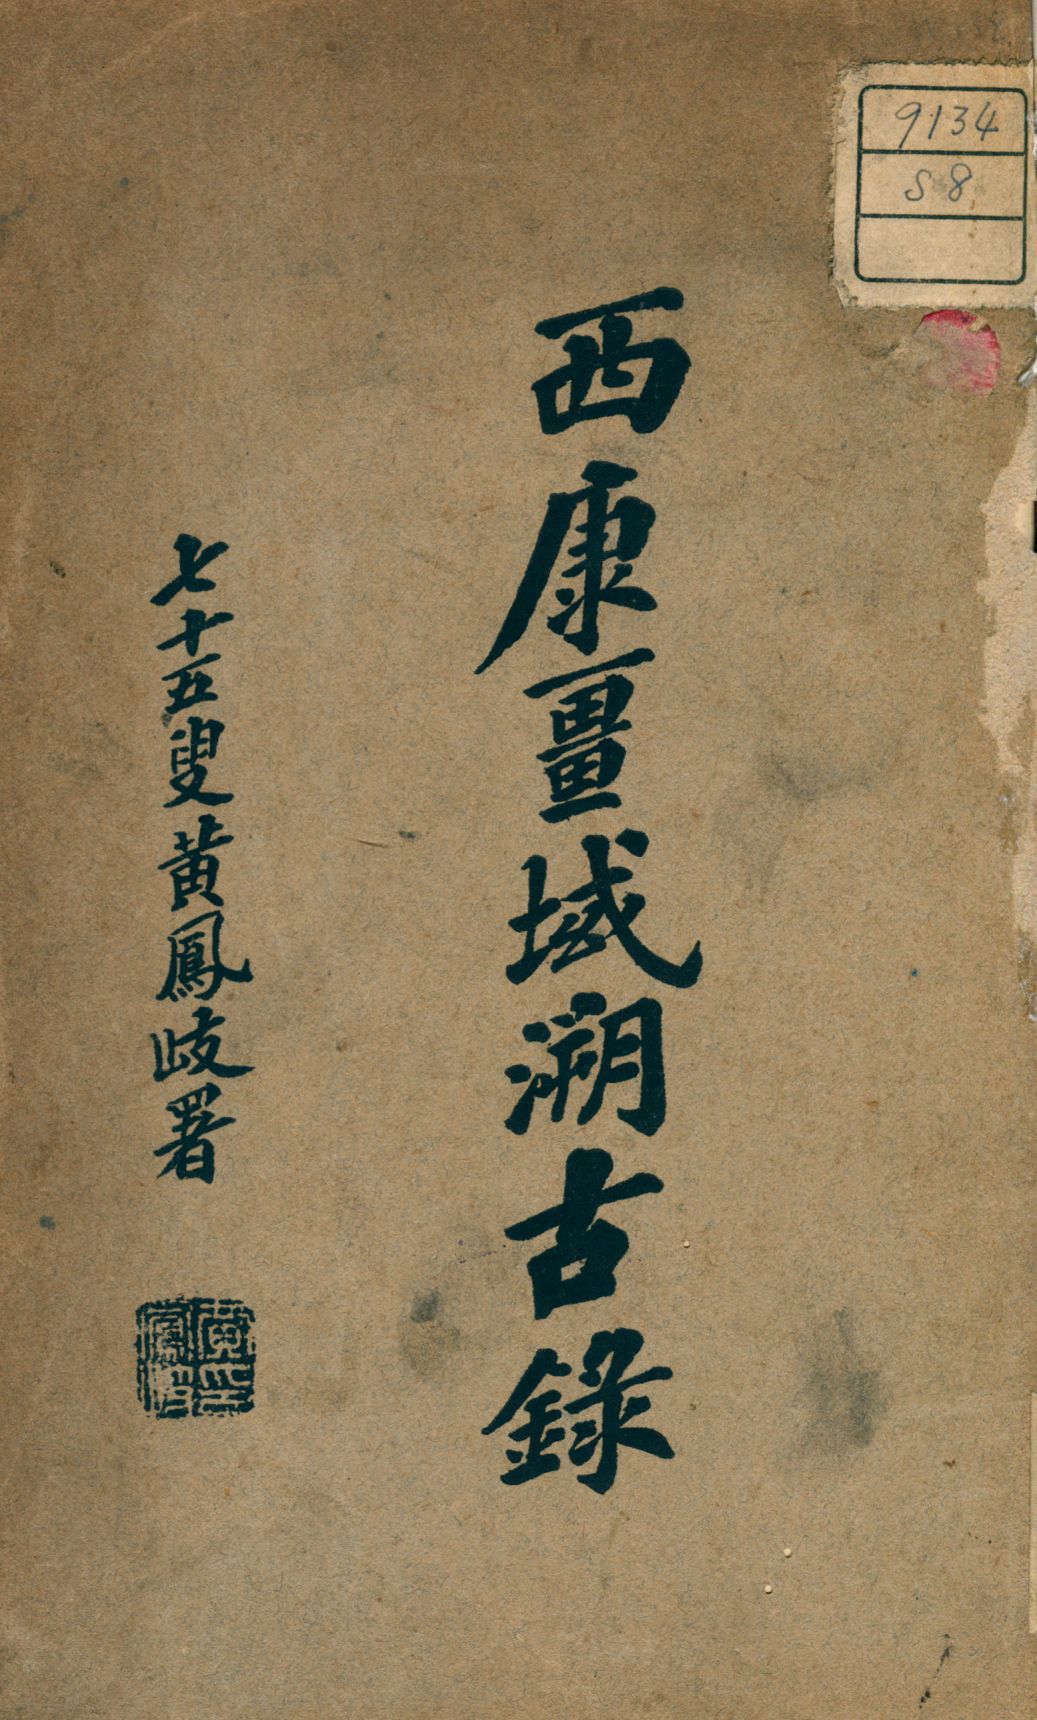 9134
S8
西康畺域溯古錄
七十五叟黃鳳岐署
黃印
鳳岐